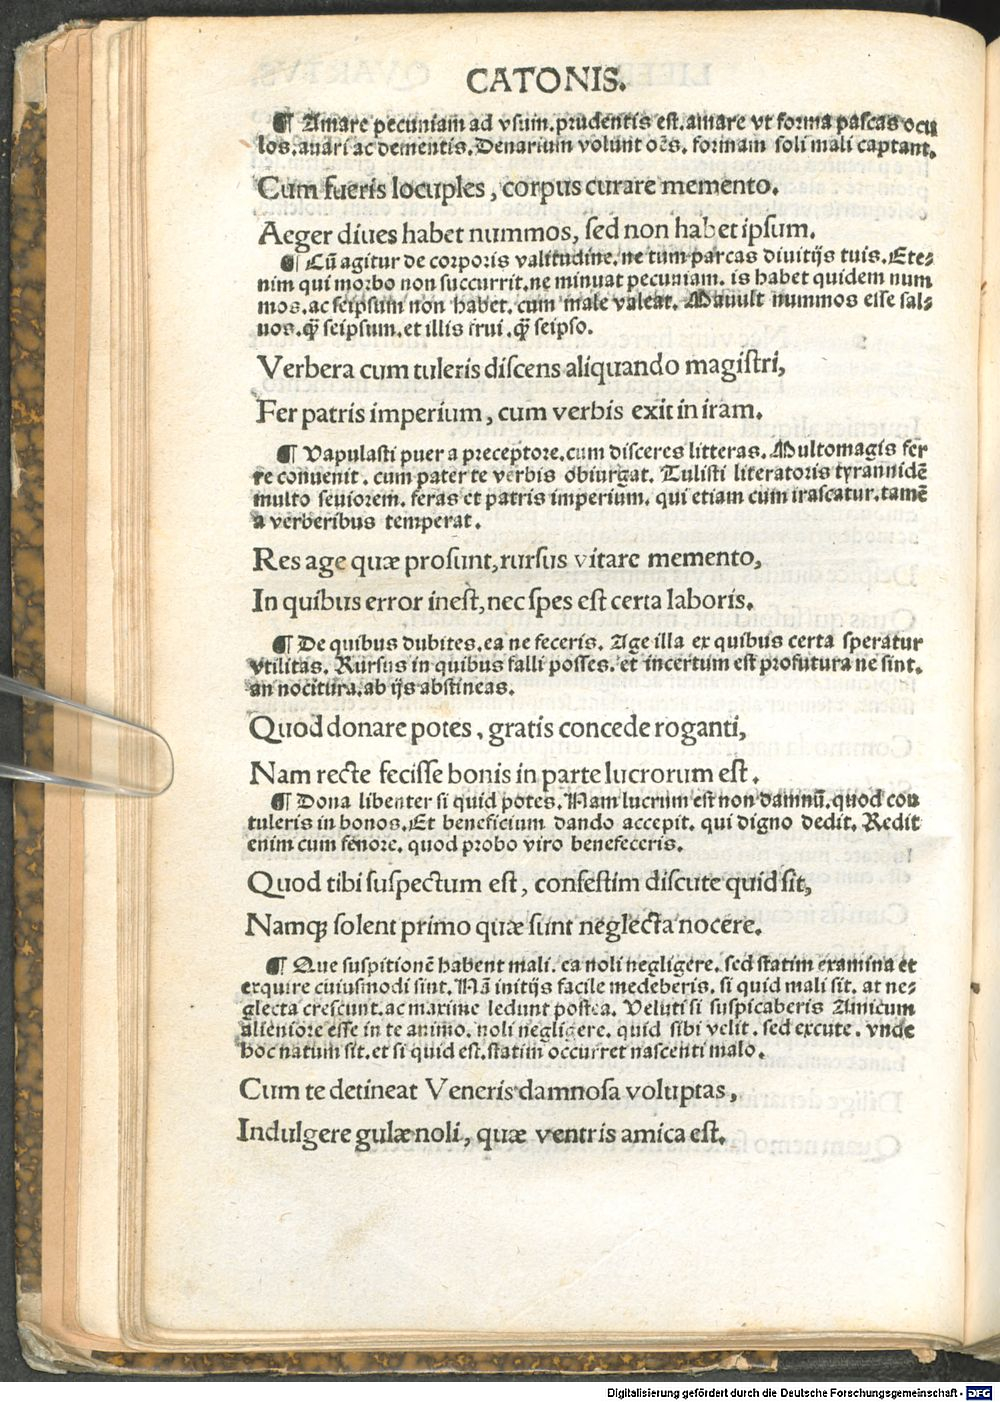 CATONIS.
¶ Amare pecuniam ad vsum. prudentis est. amare vt forma pascas ocu
los. auari ac dementis. Denarium volunt oēs. formam soli mali captant.
Cum fueris locuples, corpus curare memento.
Aeger diues habet nummos, sed non habet ipsum.
¶ Cū agitur de corporis valitudine. ne tum parcas diuitijs tuis. Ete⸗
nim qui morbo non succurrit. ne minuat pecuniam. is habet quidem num
mos. ac seipsum non habet. cum male valeat. Mauult nummos esse sal⸗
uos. q̄ꝫ seipsum. et illis frui. q̄ꝫ seipso.
Verbera cum tuleris discens aliquando magistri,
Fer patris imperium, cum verbis exit in iram.
¶ Vapulasti puer a preceptore. cum disceres litteras. Multomagis fer
re conuenit. cum pater te verbis obiurgat. Tulisti literatoris tyrannidē
multo seuiorem. feras et patris imperium. qui etiam cum irascatur. tamē
a verberibus temperat.
Res age quæ prosunt, rursus vitare memento,
In quibus error inest, nec spes est certa laboris.
¶ De quibus dubites. ea ne feceris. Age illa ex quibus certa speratur
vtilitas. Rursus in quibus falli posses. et incertum est profutura ne sint.
an nocitura. ab ijs abstineas.
Quod donare potes, gratis concede roganti,
Nam recte fecisse bonis in parte lucrorum est.
¶ Dona libenter si quid potes. Nam lucrum est non damnū. quod con
tuleris in bonos. Et beneficium dando accepit. qui digno dedit. Redit
enim cum fenore. quod probo viro benefeceris.
Quod tibi suspectum est, confestim discute quid sit,
Namqꝫ solent primo quæ sunt neglecta nocere.
¶ Que suspitionē habent mali. ea noli negligere. sed statim examina et
exquire cuiusmodi sint. Nā initijs facile medeberis. si quid mali sit. at ne⸗
glecta crescunt. ac maxime ledunt postea. Veluti si suspicaberis Amicum
alieniore esse in te animo. noli negligere. quid sibi velit. sed excute. vnde
hoc natum sit. et si quid est. statim occurret nascenti malo.
Cum te detineat Veneris damnosa voluptas,
Indulgere gulæ noli, quæ ventris amica est.
Digitalisierung gefördert durch die Deutsche Forschungsgemeinschaft - DFG